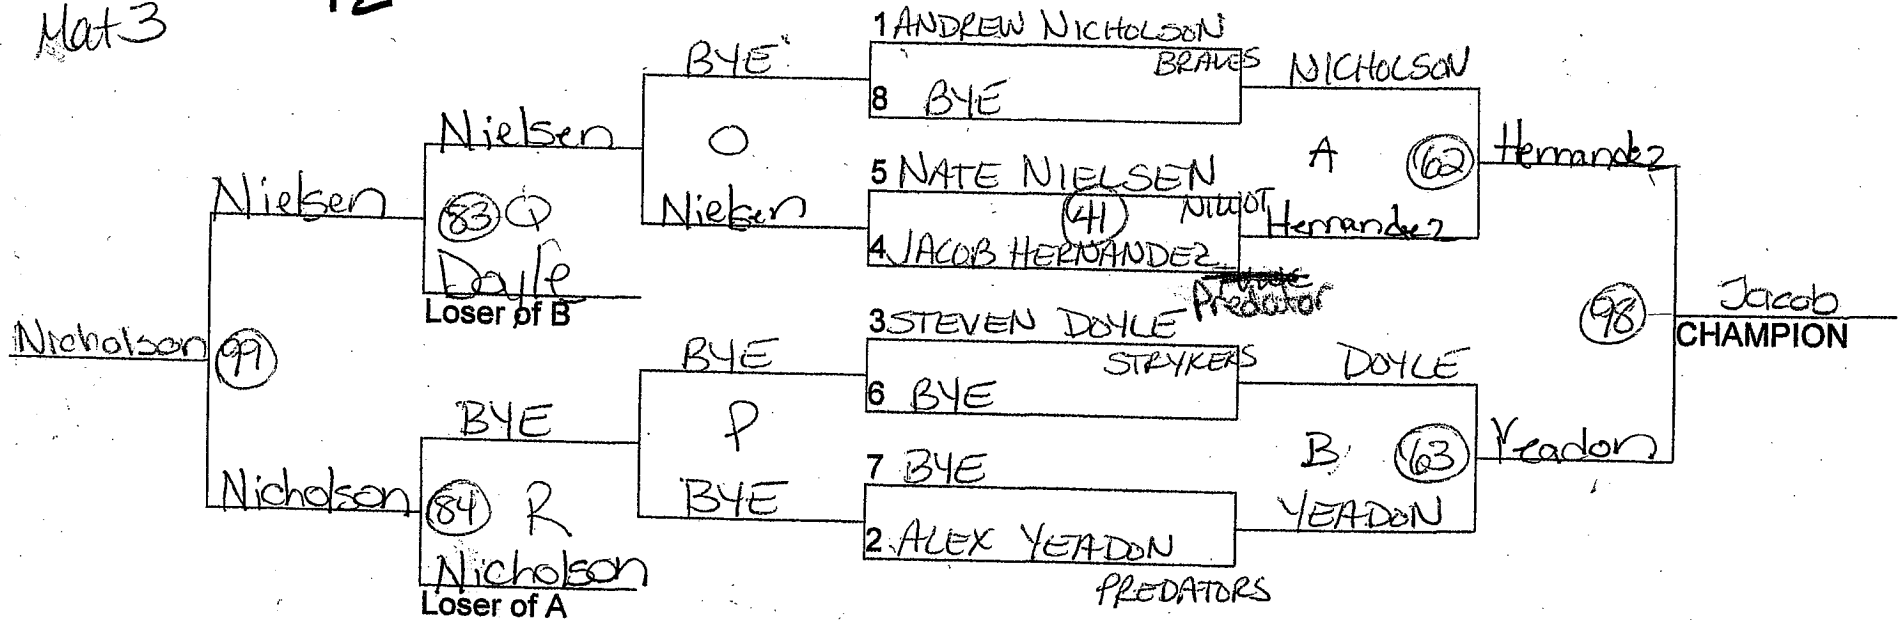 Mat 3
12
1 ANDREW NICHOLSON
BRAVES
8 BYE
5 NATE NIELSEN
NIWOT
41
4 JACOB HERNANDEZ
Predator
3 STEVEN DOYLE
STRYKERS
6 BYE
7 BYE
2 ALEX YEADON
PREDATORS
NICHOLSON
A 62
Hernandez
DOYLE
B 63
YEADON
Hernandez
98
Yeadon
Jacob
CHAMPION
BYE
O
Nielsen
BYE
P
BYE
Nielsen
83 Q
Doyle
Loser of B
BYE
84 R
Nicholson
Loser of A
Nielsen
99
Nicholson
Nicholson